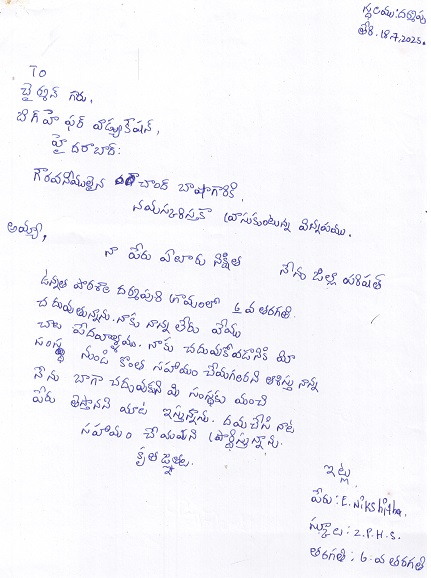 స్థలము: దర్మాపురి
తేది. 18.7.2025.
To
చైర్మన్ గారు,
బిగ్ హె ఫర్ ఎడ్యుకేషన్,
హైదరాబాద్.
గౌరవనీయులైన చాంద్ బాషాగారికి,
నమస్కరిస్తూ వ్రాసుకుంటున్న విన్నపము.
అయ్యా,
నా పేరు ఏలూరు నిక్షిత నేను జిల్లా పరిషత్
ఉన్నత పాఠశాల దర్మాపురి గ్రామంలో 6 వ తరగతి
చదువుతున్నాను. నాకు నాన్న లేరు మేము
చాలా పేదవాళ్ళము. నాకు చదువుకోవడానికి మీ
సంస్థ నుండి కొంత సహాయం చేయగలరని ఆశిస్తున్నాను
నేను బాగా చదువుకుని మీ సంస్థకు మంచి
పేరు తెస్తానని మాట ఇస్తున్నాను. దయచేసి నాకు
సహాయం చేయమని ప్రార్థిస్తున్నాను.
కృతజ్ఞతలు.
ఇట్లు
పేరు: E. Nikshitha.
స్కూలు: Z.P.H.S.
తరగతి: 6 వ తరగతి